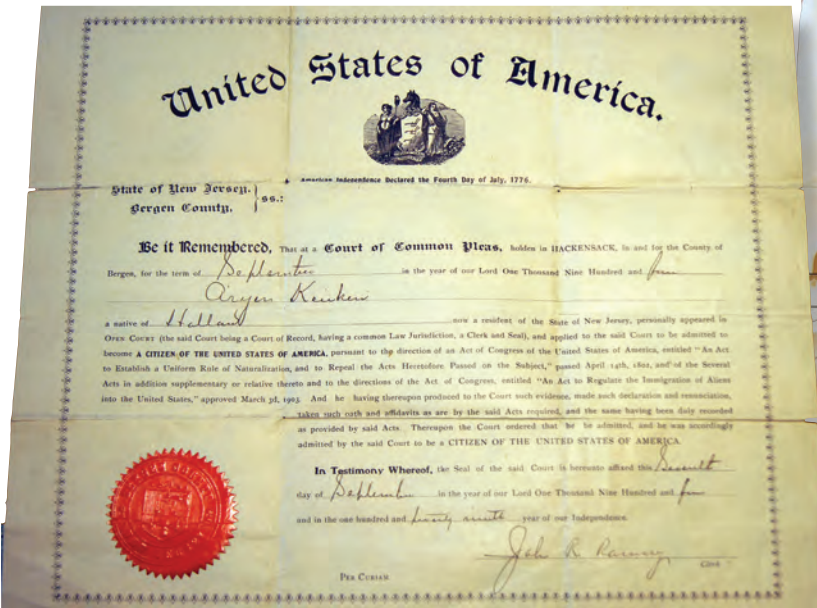 United States of America.
American Independence Declared the Fourth Day of July, 1776.
State of New Jersey. } ss.:
Bergen County,
Be it Remembered, That at a Court of Common Pleas, holden in HACKENSACK, in and for the County of
Bergen, for the term of September in the year of our Lord One Thousand Nine Hundred and four
Aryen
a native of Holland now a resident of the State of New Jersey, personally appeared in
OPEN COURT (the said Court being a Court of Record, having a common Law Jurisdiction, a Clerk and Seal), and applied to the said Court to be admitted to
become A CITIZEN OF THE UNITED STATES OF AMERICA, pursuant to the direction of an Act of Congress of the United States of America, entitled "An Act
to Establish a Uniform Rule of Naturalization, and to Repeal the Acts Heretofore Passed on the Subject," passed April 14th, 1802, and of the Several
Acts in addition supplementary or relative thereto and to the directions of the Act of Congress, entitled "An Act to Regulate the Immigration of Aliens
into the United States," approved March 3d, 1903. And he having thereupon produced to the Court such evidence, made such declaration and renunciation,
taken such oath and affidavits as are by the said Acts required, and the same having been duly recorded
as provided by said Acts. Thereupon the Court ordered that he be admitted, and he was accordingly
admitted by the said Court to be a CITIZEN OF THE UNITED STATES OF AMERICA.
In Testimony Whereof, the Seal of the said Court is hereunto affixed this
day of September in the year of our Lord One Thousand Nine Hundred and four
and in the one hundred and twenty ninth year of our Independence.
John R. Ramsey
Clerk
PER CURIAM